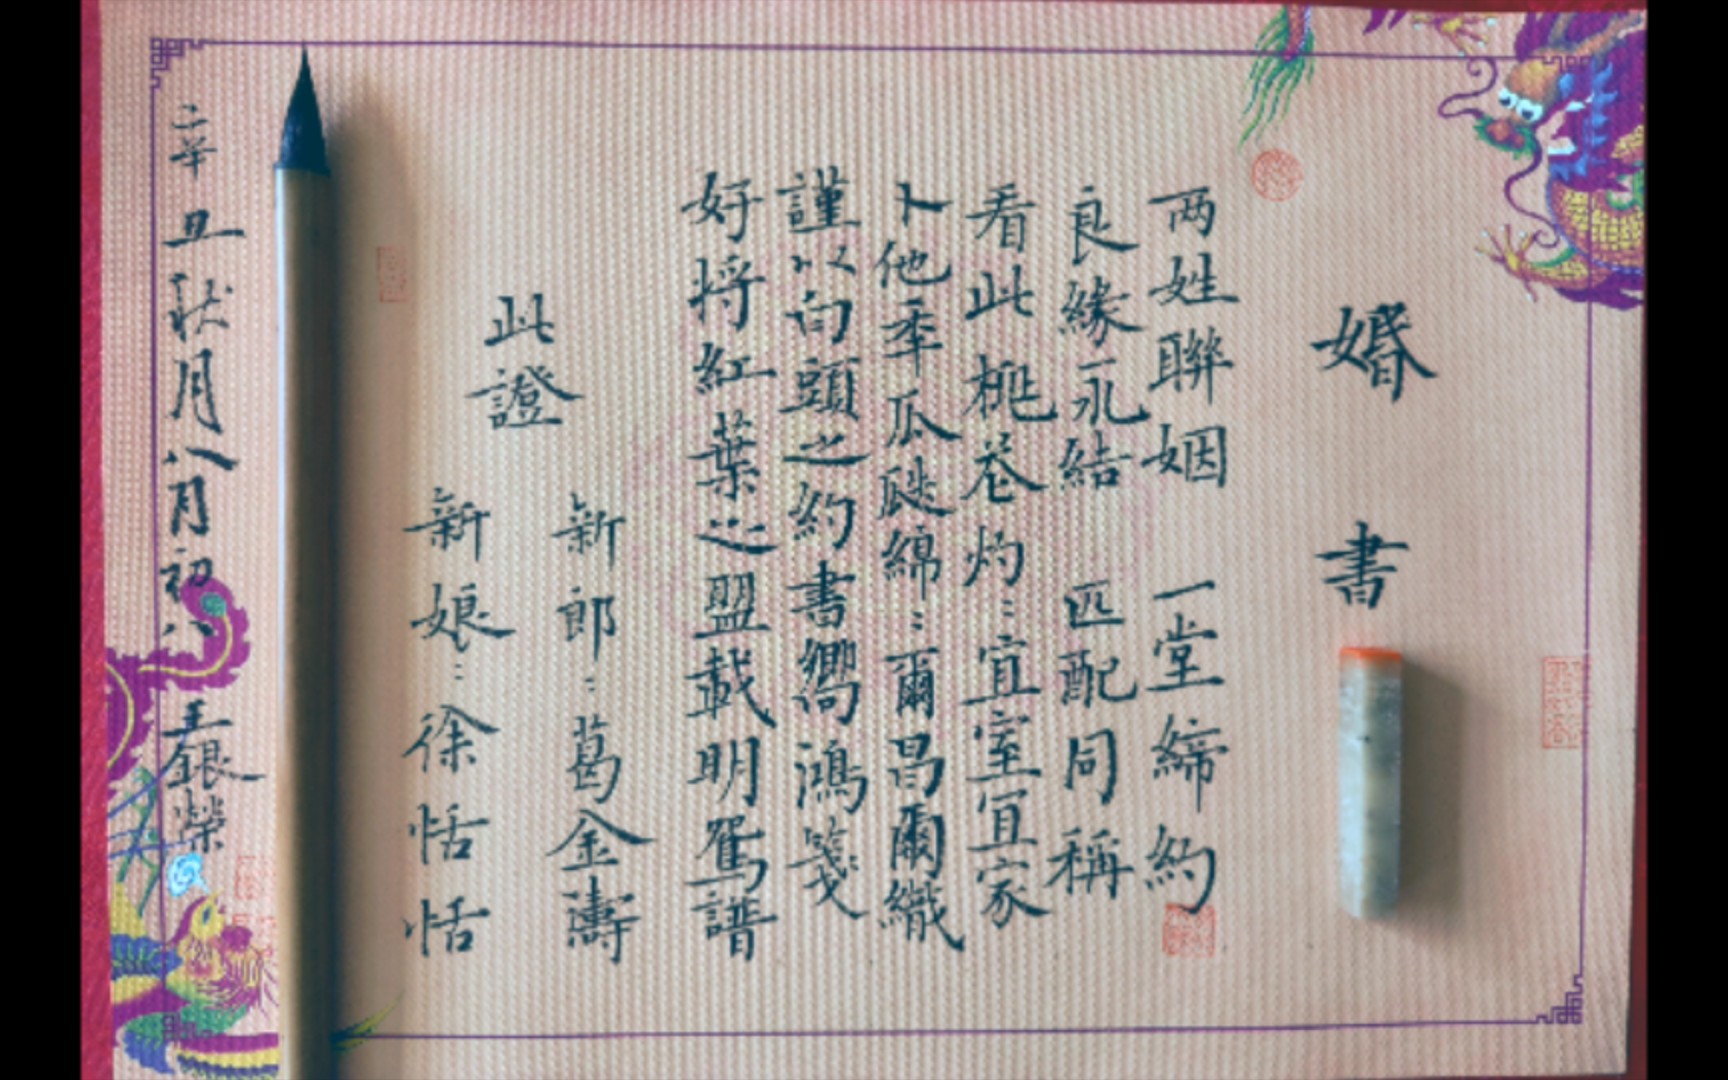 婚書
两姓聯姻 一堂締約
良緣永結 匹配同稱
看此桃花灼:宜室宜家
卜他年瓜瓞綿:爾昌爾熾
謹以白頭之約書嚮鴻箋
好將紅葉之盟載明鴛譜
此證
新郎:葛金濤
新娘:徐恬恬
辛丑秋月八月初八 王銀榮